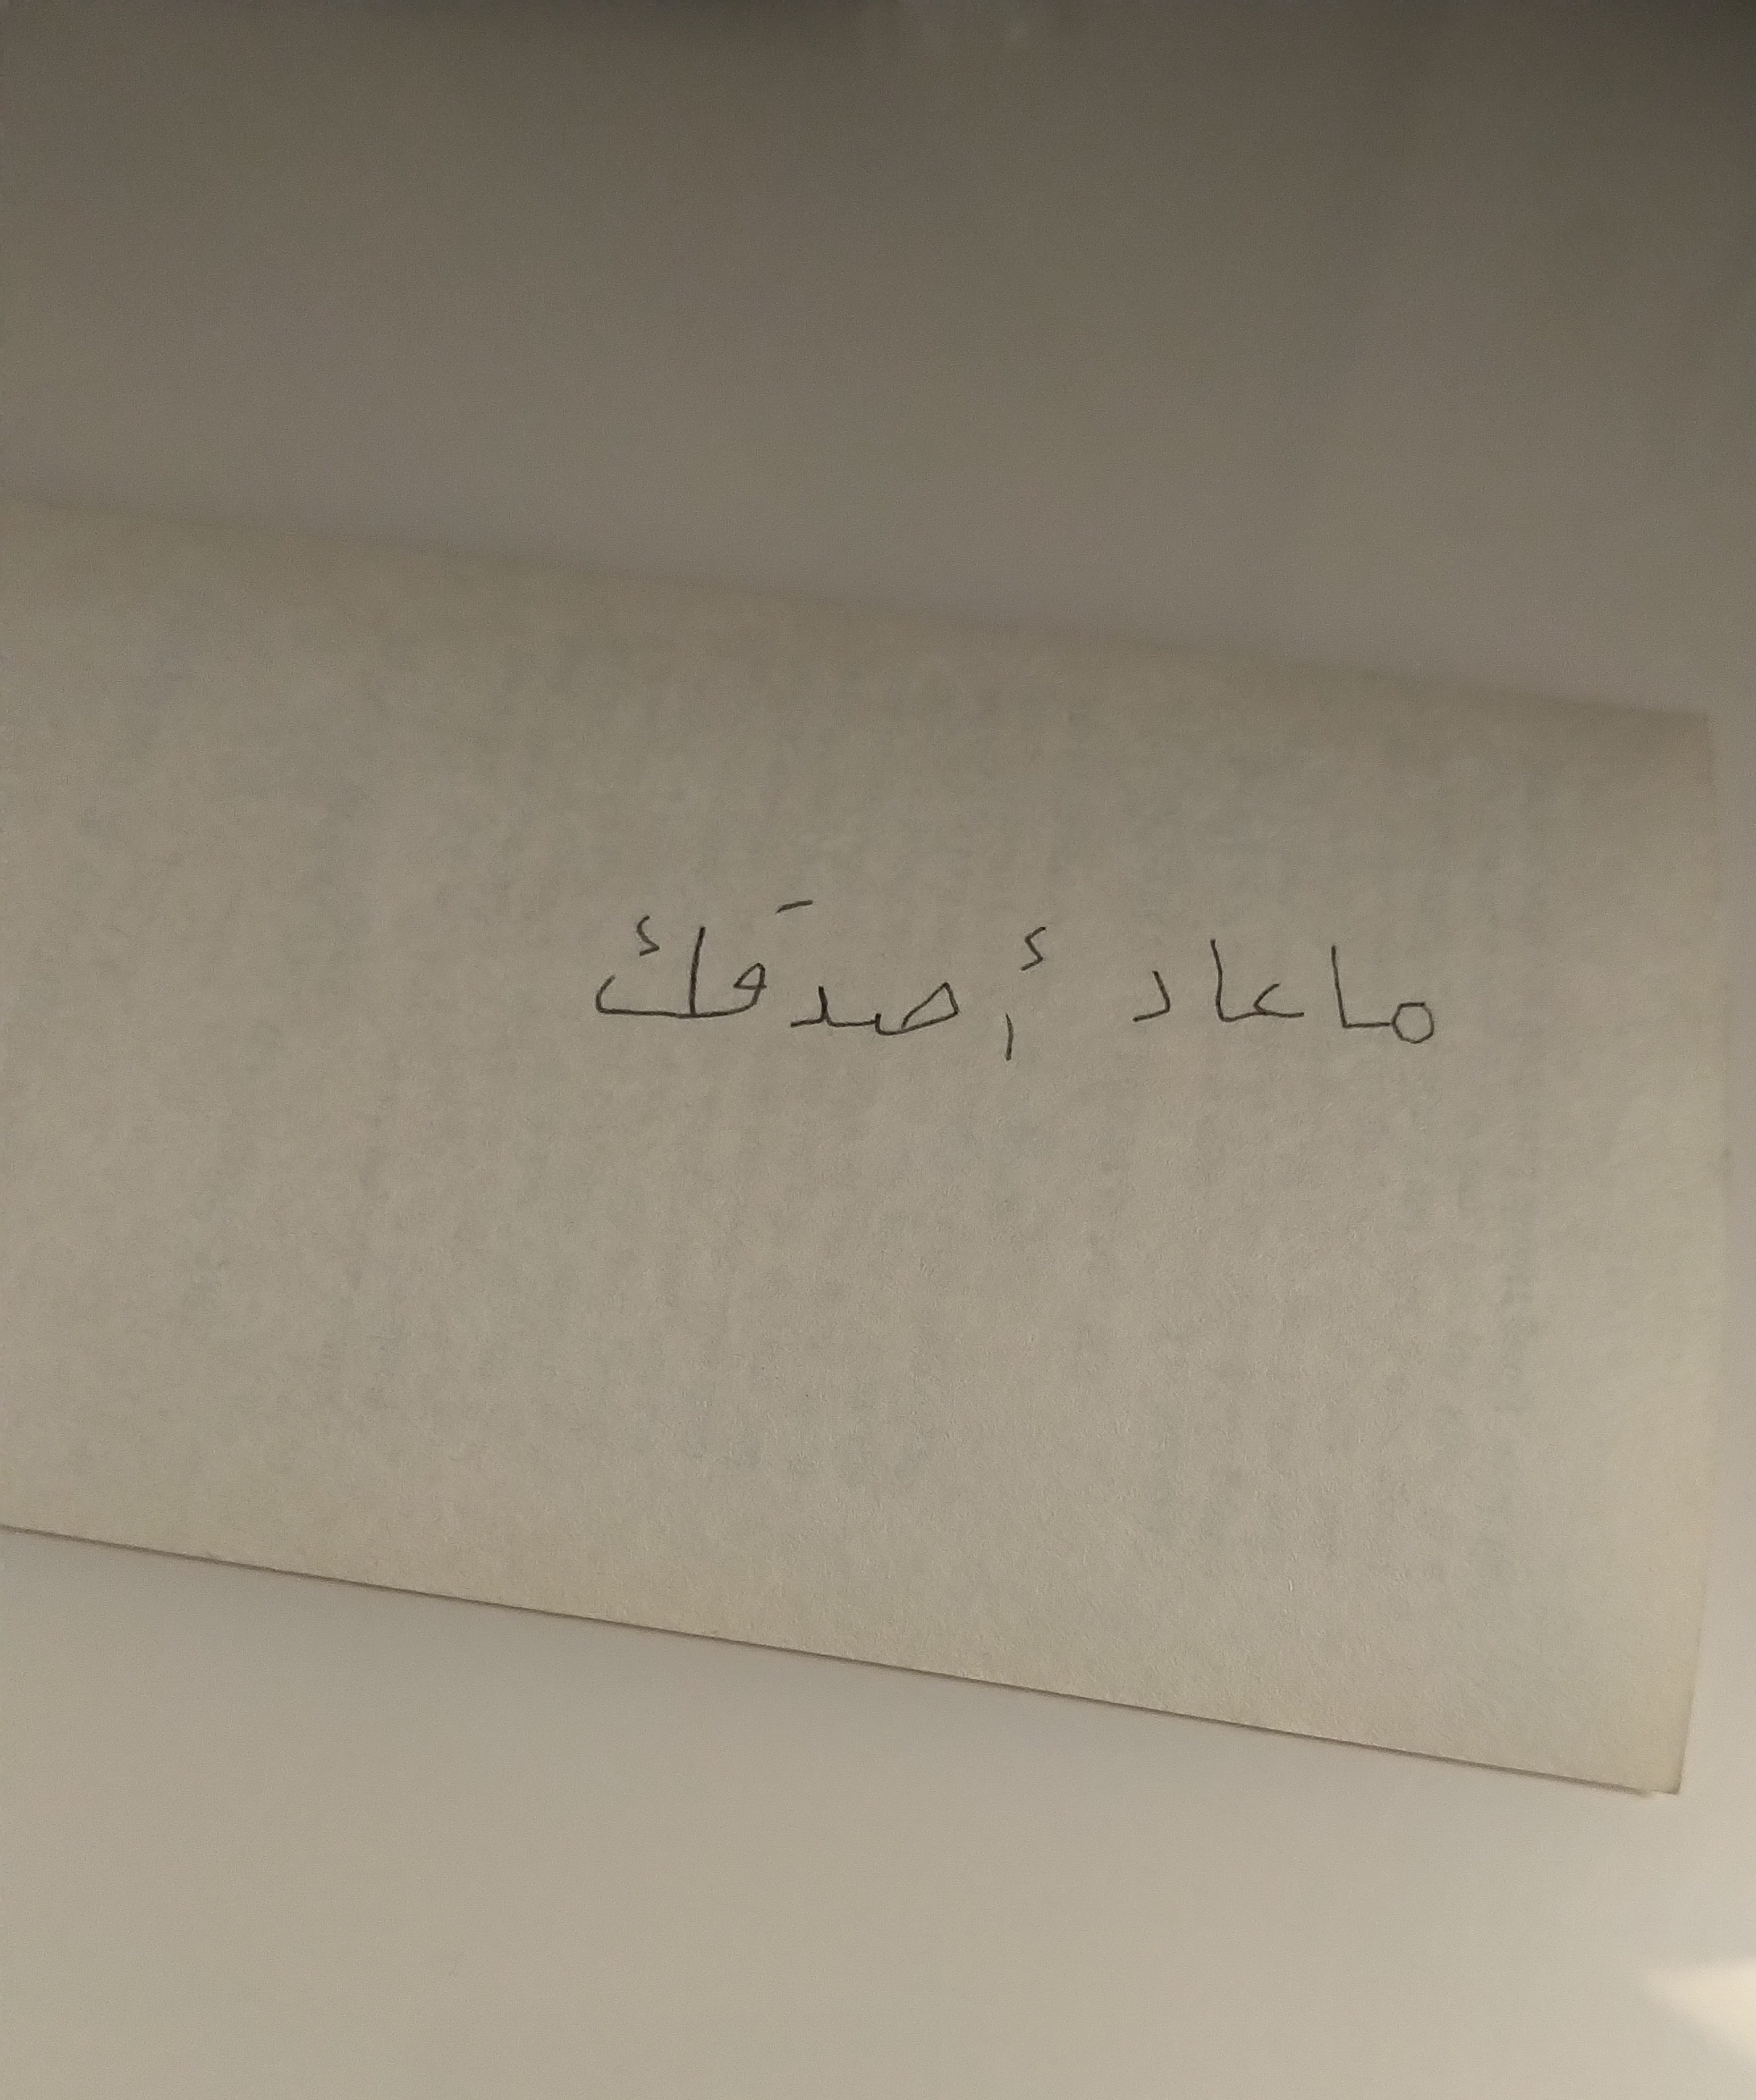 ما عاد أصدقك